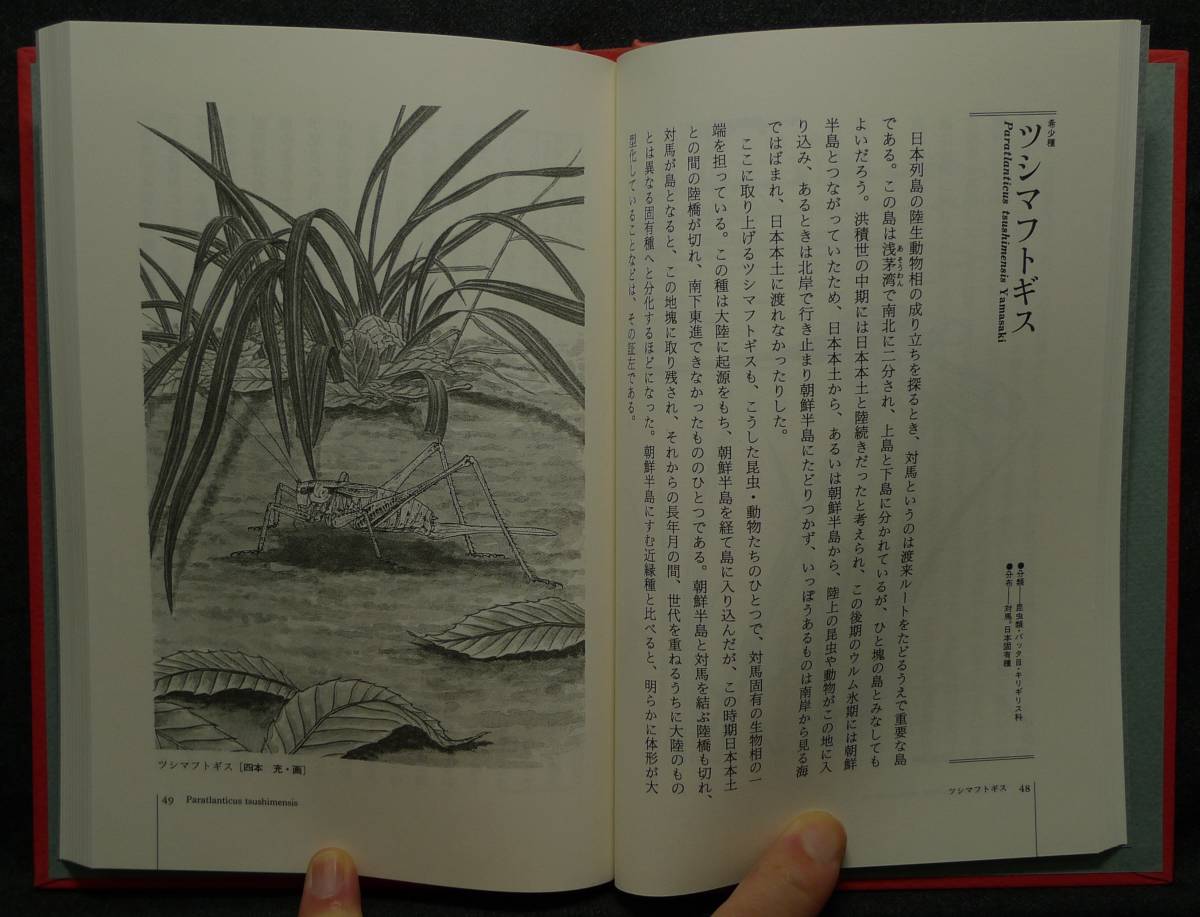 希少種
ツシマフトギス
Paratlanticus tsushimensis Yamasaki
●分類――昆虫類・バッタ目・キリギリス科
●分布――対馬。日本固有種
日本列島の陸生動物相の成り立ちを探るとき、対馬というのは渡来ルートをたどるうえで重要な島
である。この島は浅茅湾で南北に二分され、上島と下島に分かれているが、ひと塊の島とみなしても
あそうわん
よいだろう。洪積世の中期には日本本土と陸続きだったと考えられ、この後期のウルム氷期には朝鮮
半島とつながっていたため、日本本土から、あるいは朝鮮半島から、陸上の昆虫や動物がこの地に入
り込み、あるときは北岸で行き止まり朝鮮半島にたどりつかず、いっぽうあるものは南岸から見る海
ではばまれ、日本本土に渡れなかったりした。
ここに取り上げるツシマフトギスも、こうした昆虫・動物たちのひとつで、対馬固有の生物相の一
端を担っている。この種は大陸に起源をもち、朝鮮半島を経て島に入り込んだが、この時期日本本土
との間の陸橋が切れ、南下東進できなかったもののひとつである。朝鮮半島と対馬を結ぶ陸橋も切れ、
対馬が島となると、この地塊に取り残され、それからの長年月の間、世代を重ねるうちに大陸のもの
とは異なる固有種へと分化するほどになった。朝鮮半島にすむ近縁種と比べると、明らかに体形が大
型化していることなどは、その証左である。
ツシマフトギス 48
ツシマフトギス［四本　充・画］
49 Paratlanticus tsushimensis